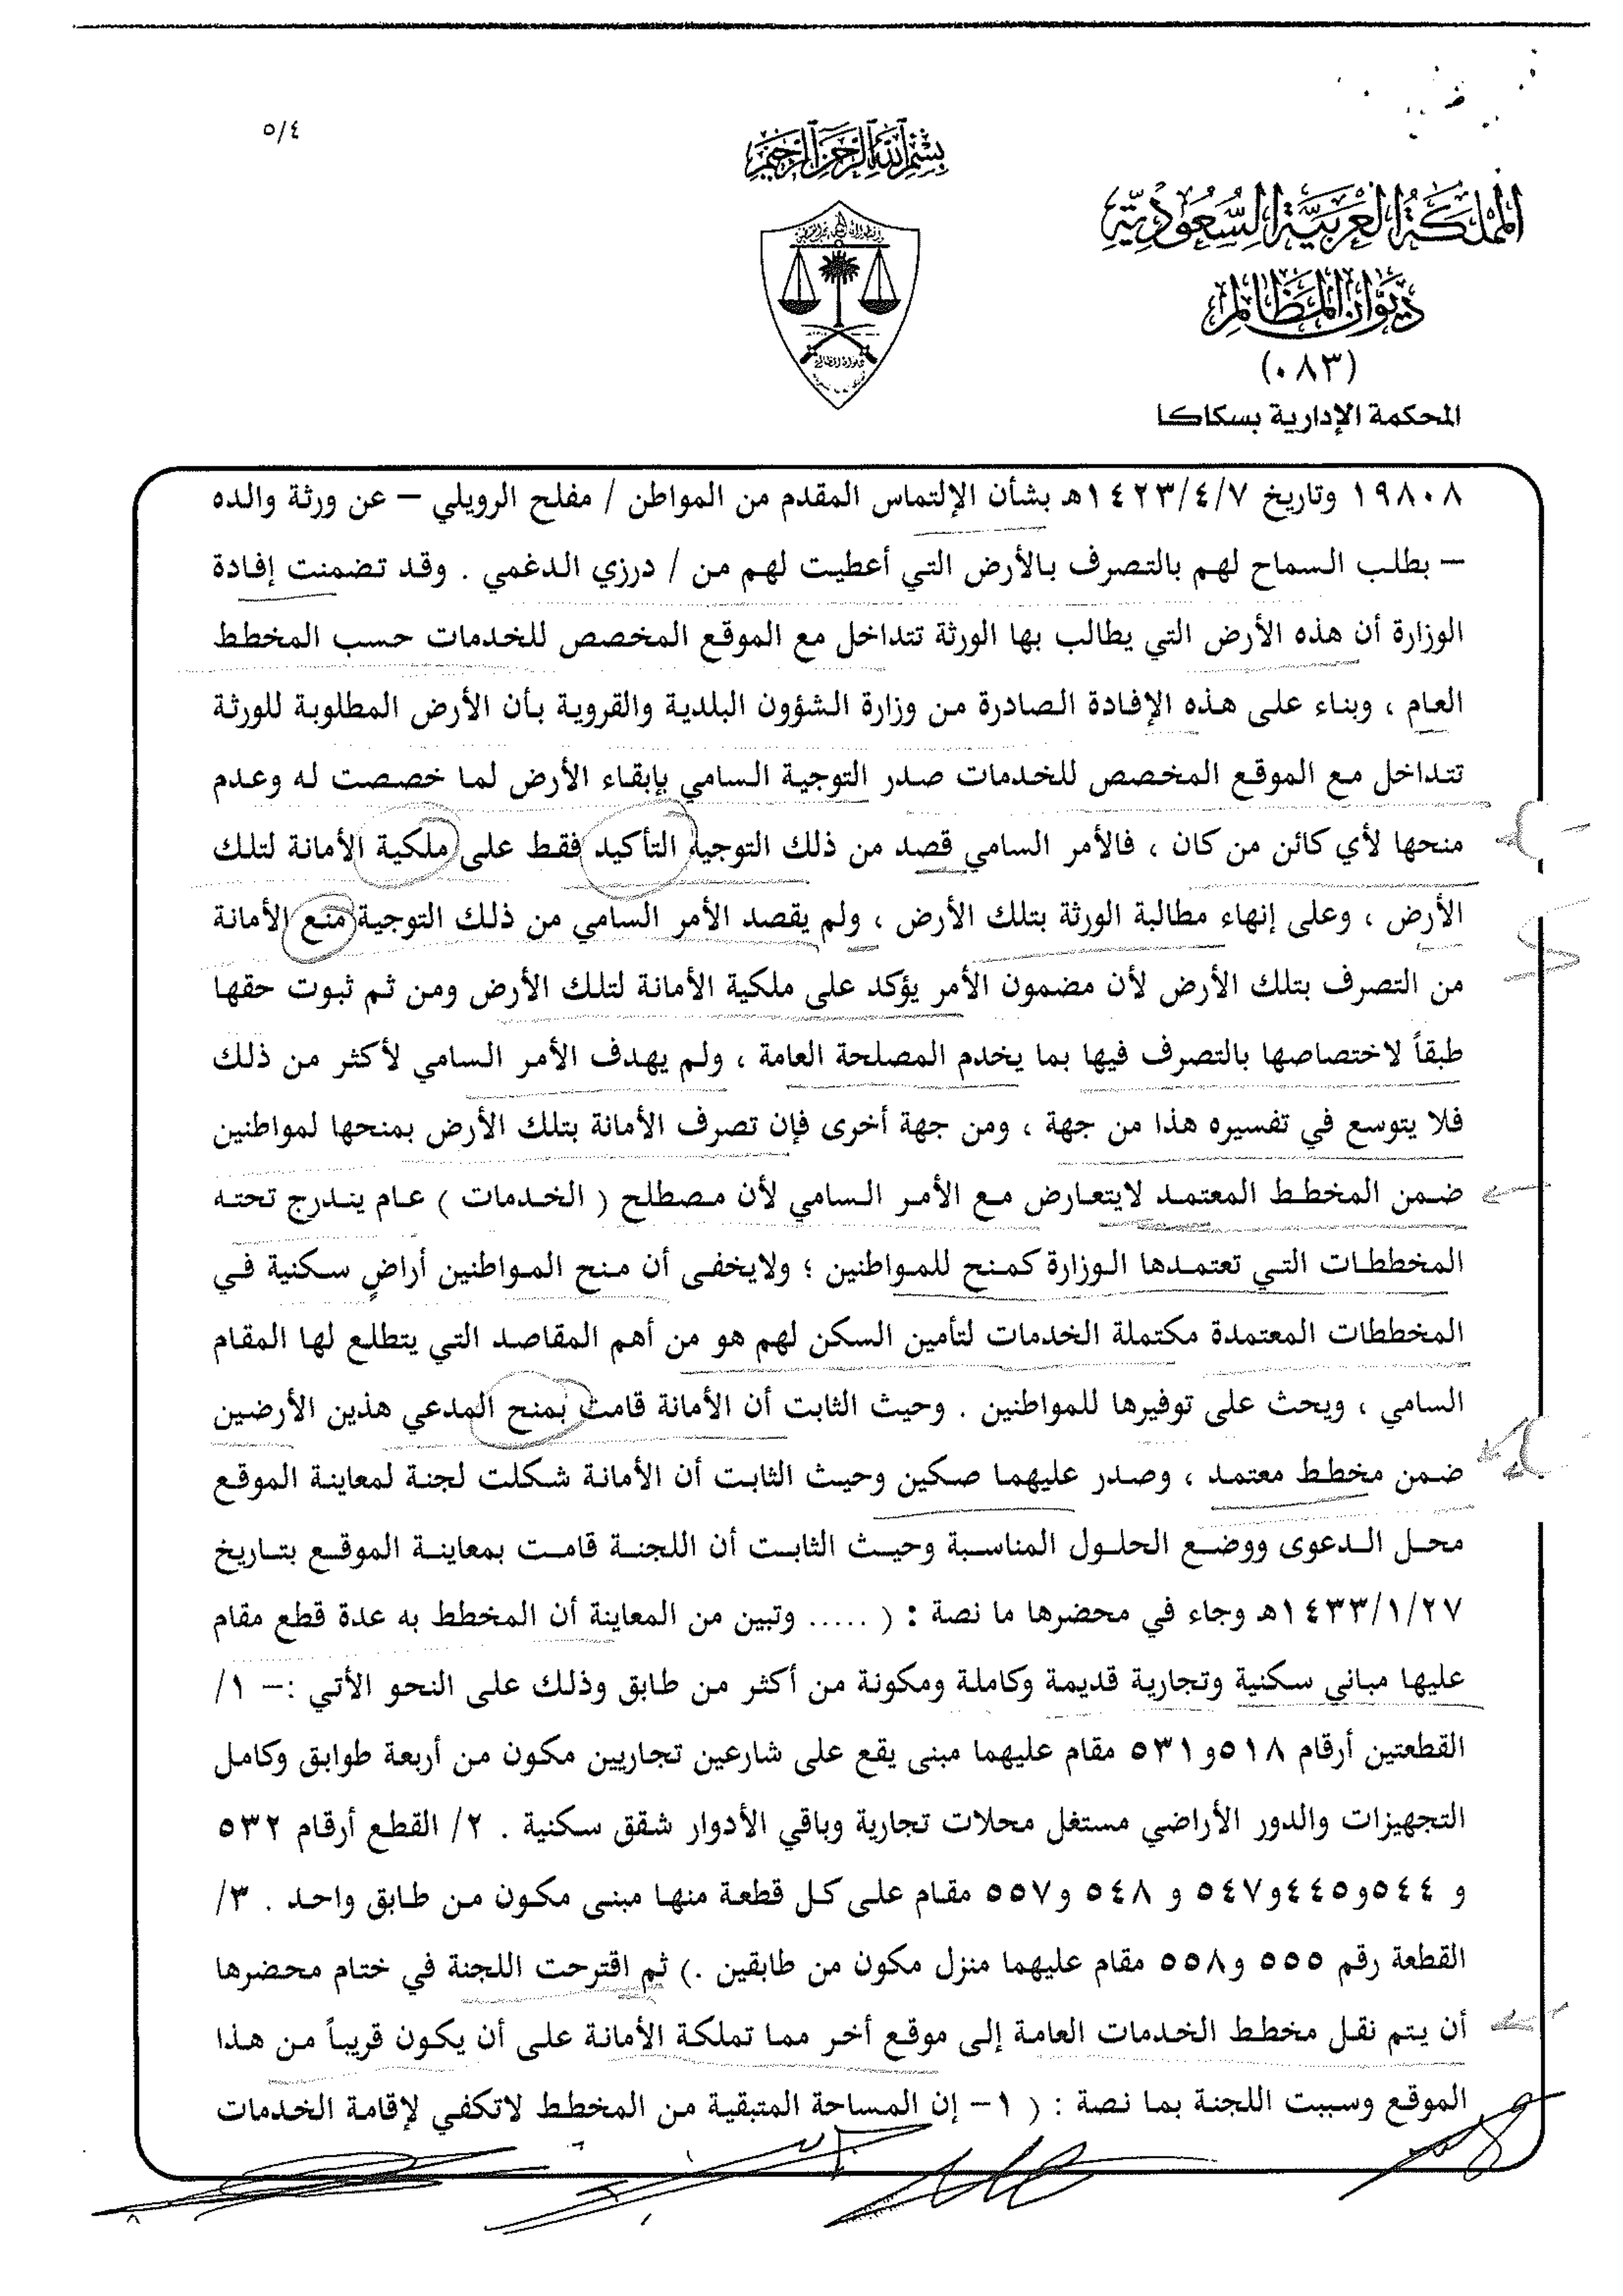 ٥/٤
بسم الله الرحمن الرحيم
المملكة العربية السعودية
ديوان المظالم
(٠٨٣)
المحكمة الإدارية بسكاكا
١٩٨٠٨ وتاريخ ١٤٢٣/٤/٧هـ بشأن الإلتماس المقدم من المواطن / مفلح الرويلي – عن ورثة والده
– بطلب السماح لهم بالتصرف بالأرض التي أعطيت لهم من / درزي الدغمي . وقد تضمنت إفادة
الوزارة أن هذه الأرض التي يطالب بها الورثة تتداخل مع الموقع المخصص للخدمات حسب المخطط
العام ، وبناء على هذه الإفادة الصادرة من وزارة الشؤون البلدية والقروية بأن الأرض المطلوبة للورثة
تتداخل مع الموقع المخصص للخدمات صدر التوجية السامي بإبقاء الأرض لما خصصت له وعدم
منحها لأي كائن من كان ، فالأمر السامي قصد من ذلك التوجية التأكيد فقط على ملكية الأمانة لتلك
الأرض ، وعلى إنهاء مطالبة الورثة بتلك الأرض ، ولم يقصد الأمر السامي من ذلك التوجية منع الأمانة
من التصرف بتلك الأرض لأن مضمون الأمر يؤكد على ملكية الأمانة لتلك الأرض ومن ثم ثبوت حقها
طبقاً لاختصاصها بالتصرف فيها بما يخدم المصلحة العامة ، ولم يهدف الأمر السامي لأكثر من ذلك
فلا يتوسع في تفسيره هذا من جهة ، ومن جهة أخرى فإن تصرف الأمانة بتلك الأرض بمنحها لمواطنين
ضمن المخطط المعتمد لايتعارض مع الأمر السامي لأن مصطلح ( الخدمات ) عام يندرج تحته
المخططات التي تعتمدها الوزارة كمنح للمواطنين ؛ ولايخفى أن منح المواطنين أراضٍ سكنية في
المخططات المعتمدة مكتملة الخدمات لتأمين السكن لهم هو من أهم المقاصد التي يتطلع لها المقام
السامي ، ويحث على توفيرها للمواطنين . وحيث الثابت أن الأمانة قامت بمنح المدعي هذين الأرضين
ضمن مخطط معتمد ، وصدر عليهما صكين وحيث الثابت أن الأمانة شكلت لجنة لمعاينة الموقع
محل الدعوى ووضع الحلول المناسبة وحيث الثابت أن اللجنة قامت بمعاينة الموقع بتاريخ
١٤٣٣/١/٢٧هـ وجاء في محضرها ما نصة : ( ..... وتبين من المعاينة أن المخطط به عدة قطع مقام
عليها مباني سكنية وتجارية قديمة وكاملة ومكونة من أكثر من طابق وذلك على النحو الأتي :– ١/
القطعتين أرقام ٥١٨و٥٣١ مقام عليهما مبنى يقع على شارعين تجاريين مكون من أربعة طوابق وكامل
التجهيزات والدور الأراضي مستغل محلات تجارية وباقي الأدوار شقق سكنية . ٢/ القطع أرقام ٥٣٢
و ٥٤٤و٤٤٥و٥٤٧ و ٥٤٨ و٥٥٧ مقام على كل قطعة منها مبنى مكون من طابق واحد . ٣/
القطعة رقم ٥٥٥ و٥٥٨ مقام عليهما منزل مكون من طابقين .) ثم اقترحت اللجنة في ختام محضرها
أن يتم نقل مخطط الخدمات العامة إلى موقع أخر مما تملكة الأمانة على أن يكون قريباً من هذا
الموقع وسببت اللجنة بما نصة : ( ١– إن المساحة المتبقية من المخطط لاتكفي لإقامة الخدمات